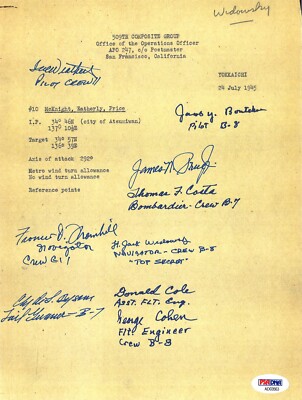 Widowsky
509TH COMPOSITE GROUP
Office of the Operations Officer
APO 247, c/o Postmaster
San Francisco, California
Pilot CREW 11
YOKKAICHI
24 July 1945
#10 McKnight, Eatherly, Price
I.P. 34° 46½
137° 10½ (city of Atsuciwan)
Jacob Y. Bontekoe
Pilot B-8
Target 34° 57½
136° 39½
Axis of attack 292°
Metro wind turn allowance
No wind turn allowance
Reference points
James N. Price Jr.
Thomas F. Costa
Bombardier-Crew B-7
Francis D. Thornhill
Navigator
H. Jack Widowsky
NAVIGATOR - CREW B-8
"TOP SECRET"
Tail Gunner-B-7
Donald Cole
ASST. FLT. Eng.
George Cohen
Flt. Engineer
Crew B-8
PSA/DNA